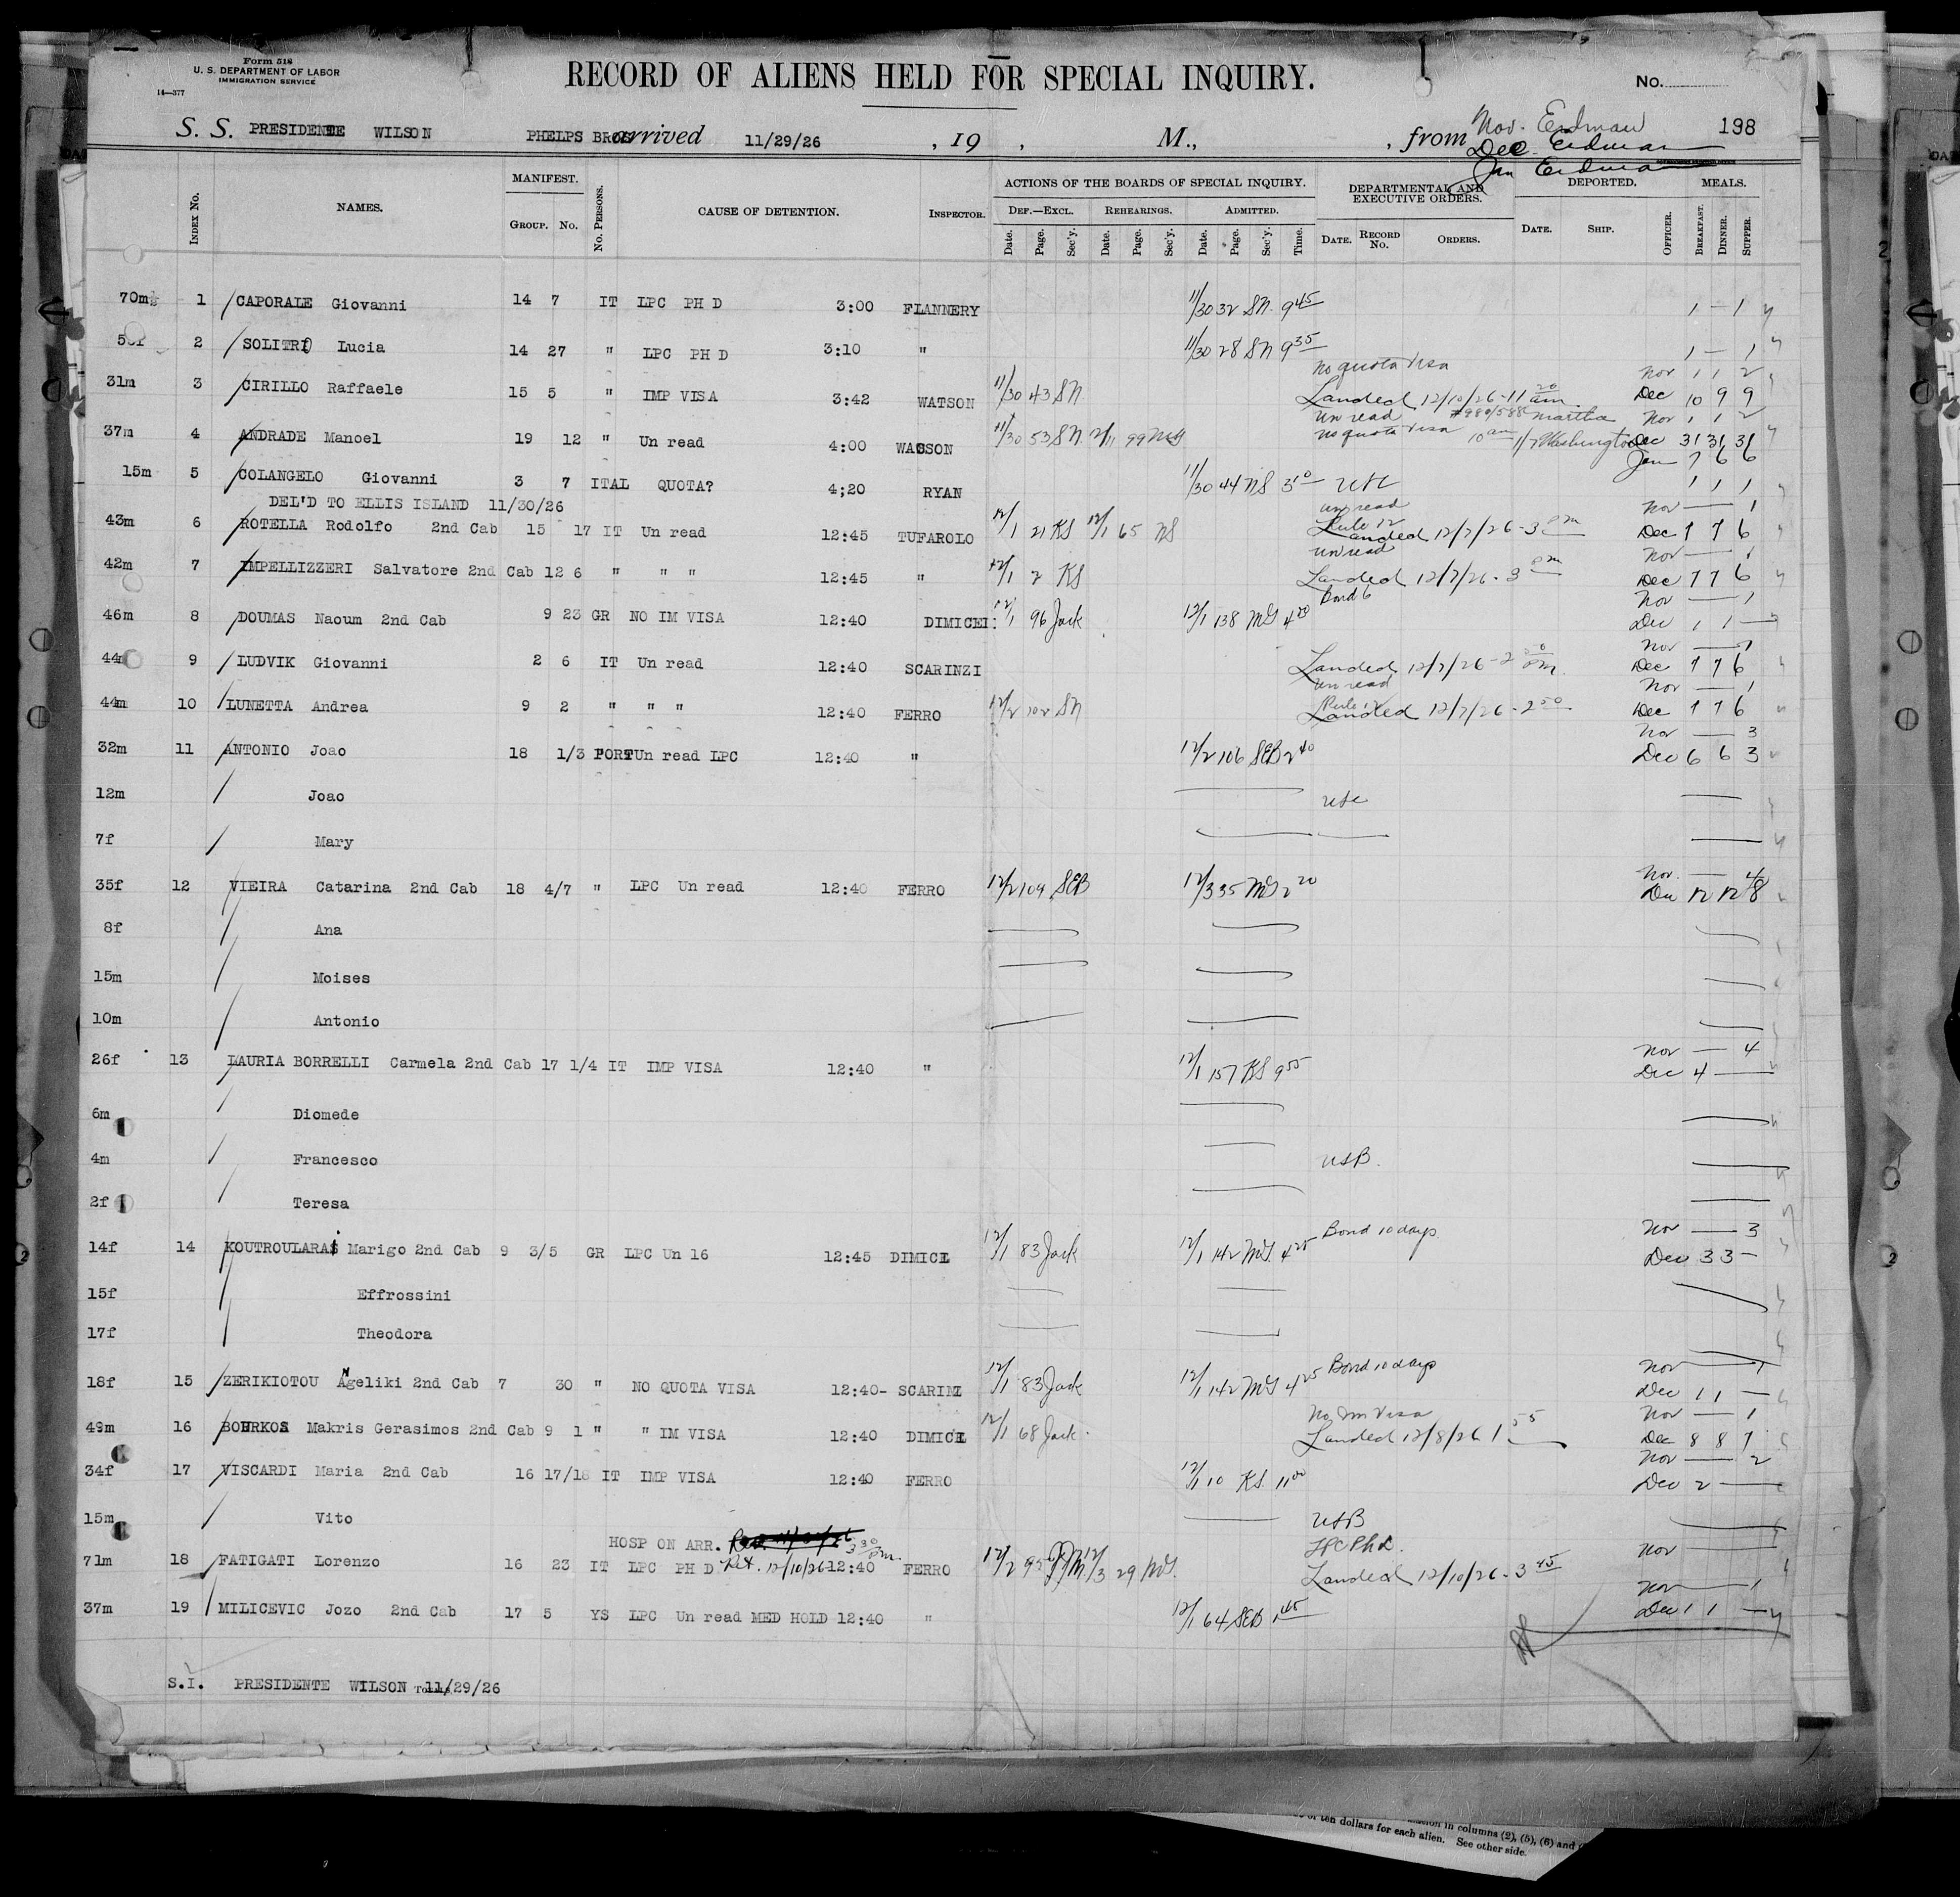 Form 518
U. S. DEPARTMENT OF LABOR
IMMIGRATION SERVICE
14—377
RECORD OF ALIENS HELD FOR SPECIAL INQUIRY.
No.
S. S. PRESIDENTE WILSON PHELPS BROS arrived 11/29/26 , 19 , M., , from Nov. Erdman 198
Dec. Erdman
Jan Erdman
Index No. NAMES. MANIFEST. Group. No. No. Persons. CAUSE OF DETENTION. Inspector. ACTIONS OF THE BOARDS OF SPECIAL INQUIRY. DEPARTMENTAL AND EXECUTIVE ORDERS. DEPORTED. MEALS.
Def.—Excl. Rehearings. Admitted.
Date. Page. Sec'y. Date. Page. Sec'y. Date. Page. Sec'y. Time. Date. Record No. Orders. Date. Ship. Officer. Breakfast. Dinner. Supper.
70m 1 CAPORALE Giovanni 14 7 IT LPC PH D 3:00 FLANNERY 11/30 32 SN. 9 45 1 — 1
2 SOLITRO Lucia 14 27 " LPC PH D 3:10 " 11/30 28 SN 9 35 1 — 1
No quota visa Nov 1 1 2
31m 3 CIRILLO Raffaele 15 5 " IMP VISA 3:42 WATSON 11/30 43 SN Landed 12/10/26-11 20 am. Dec 10 9 9
Un read Martha Nov 1 1 2
37m 4 ANDRADE Manoel 19 12 " Un read 4:00 WATSON 11/30 53 SN 99 no quota visa 10 am 1/7 Washington Dec 31 31 31
Jan 7 6 6
15m 5 COLANGELO Giovanni 3 7 ITAL QUOTA? 4;20 RYAN 11/30 44 NS 3 10 1 1 1
DEL'D TO ELLIS ISLAND 11/30/26
un read Nov — 1
43m 6 ROTELLA Rodolfo 2nd Cab 15 17 IT Un read 12:45 TUFAROLO 12/1 21 KS 12/1 65 NS Rule 12 Landed 12/7/26-3 pm Dec 7 7 6
un read Nov — 1
42m 7 IMPELLIZZERI Salvatore 2nd Cab 12 6 " " " 12:45 " 12/1 2 KS Landed 12/7/26-3 pm Dec 7 7 6
Bond 6 Nov — 1
46m 8 DOUMAS Naoum 2nd Cab 9 23 GR NO IM VISA 12:40 DIMICEI 12/1 96 Jack 12/1 138 MG 4 20 Dec 1 1 —
Nov — 1
44m 9 LUDVIK Giovanni 2 6 IT Un read 12:40 SCARINZI Landed 12/7/26-2 50 pm. Dec 7 7 6
Un read Nov — 1
44m 10 LUNETTA Andrea 9 2 " " " 12:40 FERRO 12/2 102 SN Rule 12 Landed 12/7/26-2 50 Dec 7 7 6
Nov — 3
32m 11 ANTONIO Joao 18 1/3 PORT Un read LPC 12:40 " 12/2 106 SEB 2 40 Dec 6 6 3
12m Joao
7f Mary
Nov. — 4
35f 12 VIEIRA Catarina 2nd Cab 18 4/7 " LPC Un read 12:40 FERRO 12/2 109 SEB 12/3 35 MG 2 20 Dec 12 12 8
8f Ana
15m Moises
10m Antonio
Nov — 4
26f 13 LAURIA BORRELLI Carmela 2nd Cab 17 1/4 IT IMP VISA 12:40 " 12/1 157 KS 9 55 Dec 4 —
6m Diomede
4m Francesco USB.
2f Teresa
Nov — 3
14f 14 KOUTROULARAS Marigo 2nd Cab 9 3/5 GR LPC Un 16 12:45 DIMICE 12/1 83 Jack 12/1 142 MG. 4 25 Bond 10 days. Dec 3 3 —
15f Effrossini
17f Theodora
Nov — 1
18f 15 ZERIKIOTOU Angeliki 2nd Cab 7 30 " NO QUOTA VISA 12:40- SCARINZ 12/1 83 Jack 12/1 142 MG 4 25 Bond 10 days Dec 1 1 —
No Im Visa Nov — 1
49m 16 BOURKOS Makris Gerasimos 2nd Cab 9 1 " " IM VISA 12:40 DIMICE 12/1 68 Jack. Landed 12/8/26 1 55 Dec 8 8 7
Nov — 2
34f 17 VISCARDI Maria 2nd Cab 16 17/18 IT IMP VISA 12:40 FERRO 12/1 10 KS. 11 00 Dec 2 —
15m Vito USB
HOSP ON ARR. 3 30 pm. LPC Ph D. Nov —
71m 18 FATIGATI Lorenzo 16 23 IT LPC PH D Ret. 12/10/26 12:40 FERRO 12/2 95 12/3 29 MG. Landed 12/10/26-3 45
Nov — 1
37m 19 MILICEVIC Jozo 2nd Cab 17 5 YS LPC Un read MED HOLD 12:40 " 12/1 64 SEB 1 45 Dec 1 1 —
S.I. PRESIDENTE WILSON 11/29/26
in columns (2), (5), (6) and
of ten dollars for each alien. See other side.